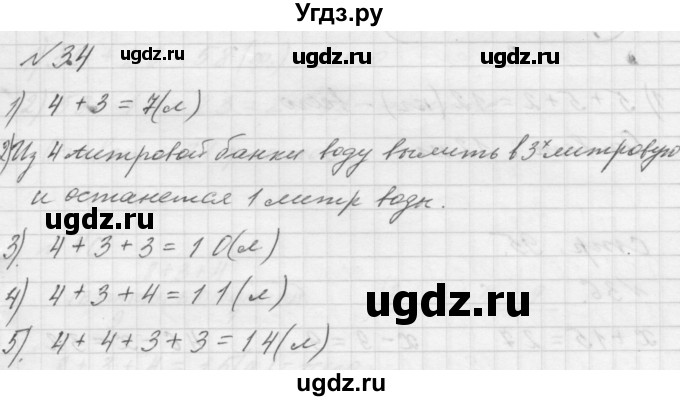 Угдз.ру
№34
ugdz.ru ugdz.ru
1) 4 + 3 = 7(л)
2) Из 4 литровой банки воду вылить в 3х литровую
и останется 1 литр воды.
ugdz.ru
3) 4 + 3 + 3 = 10(л)
ugdz.ru
4) 4 + 3 + 4 = 11(л)
ugdz.ru
5) 4 + 4 + 3 + 3 = 14(л)
ugdz.ru
ugdz.ru